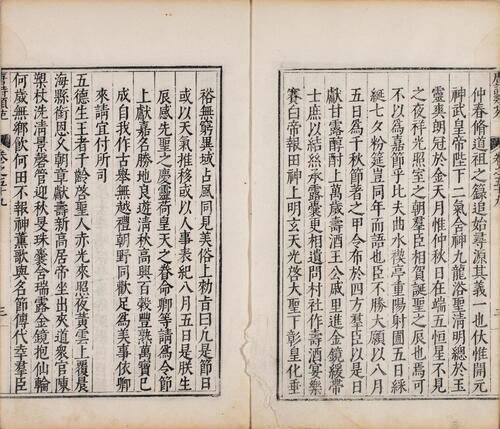 仲春脩道祖之籙追始尋源其義一也伏惟開元
神武皇帝陛下二氣含神九龍浴聖清明總於玉
靈爽朗冠於金天月惟仲秋日在端五恒星不見
之夜祥光照室之朝羣臣相賀誕聖之辰也焉可
不以爲嘉節乎比夫曲水禊亭重陽射圃五日綵
綖七夕粉筵豈同年而語也臣不勝大願以八月
五日爲千秋節著之甲令布於四方羣臣以是日
獻甘露醇酎上萬歲壽酒王公戚里進金鏡綬帶
士庶以結絲承露囊更相遺問村社作壽酒宴樂
賽白帝報田神上明玄天光啓大聖下彰皇化垂
裕無窮異域占風同見美俗上勑旨曰凡是節日
或以天氣推移或以人事表紀八月五日是朕生
辰感先聖之慶靈荷皇天之眷命卿等請爲令節
上獻嘉名勝地良遊清秋高興百穀豐熟萬寶已
成自我作古舉無越禮朝野同歡足爲美事依卿
來請宜付所司
五德生王者千齡啓聖人赤光來照夜黃雲上覆晨
海縣銜恩久朝章獻壽新高居帝坐出夾道衆官陳
槊杖洗清景磬管迎秋旻珠囊含瑞露金鏡抱仙輪
何歲無鄉飲何田不報神薰歌與名節傳代幸羣臣
唐詩類苑 卷之五十九 三